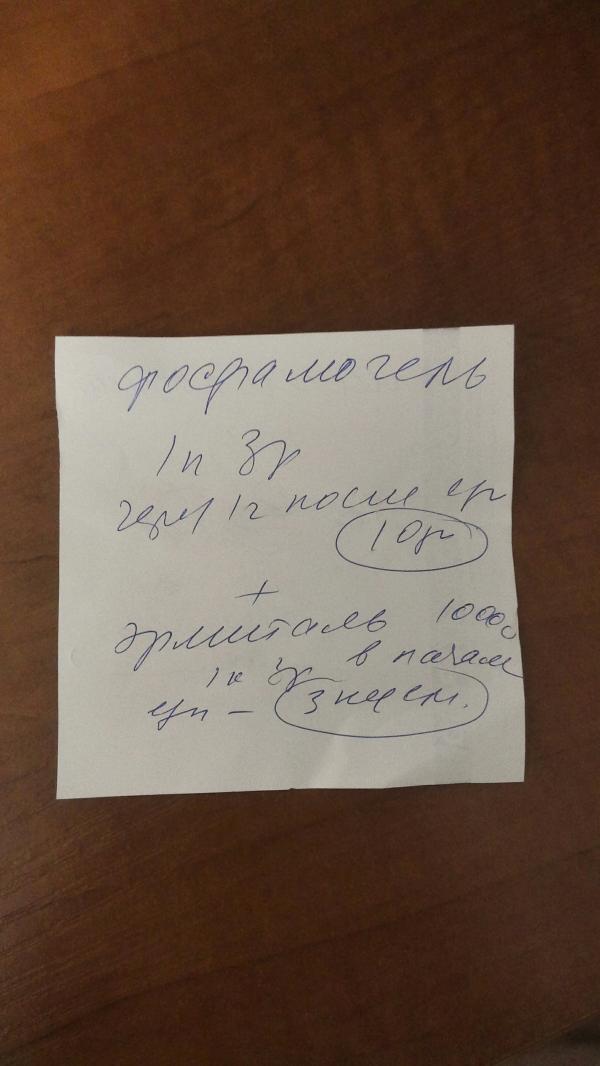 фосфамогель
1п 3р
через 1ч после ед
10дн
+
эрмиталь 10000
1к 3р в начале
еды – 3 нед